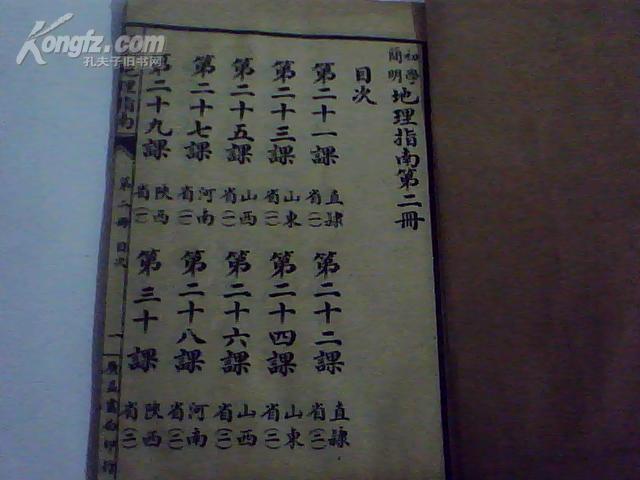 Kongfz.com
孔夫子旧书网
初學簡明地理指南第二冊
目次
第二十一課 直隸省(一) 第二十二課 直隸省(二)
第二十三課 山東省(一) 第二十四課 山東省(二)
第二十五課 山西省(一) 第二十六課 山西省(二)
第二十七課 河南省(一) 第二十八課 河南省(二)
第二十九課 陝西省(一) 第三十課 陝西省(二)
地理指南 第二冊 目次 一